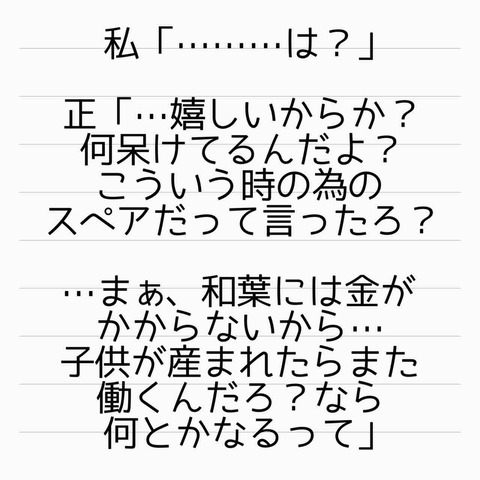 私「………は？」
正「…嬉しいからか？
何呆けてるんだよ？
こういう時の為の
スペアだって言ったろ？
…まぁ、和葉には金が
かからないから…
子供が産まれたらまた
働くんだろ？なら
何とかなるって」